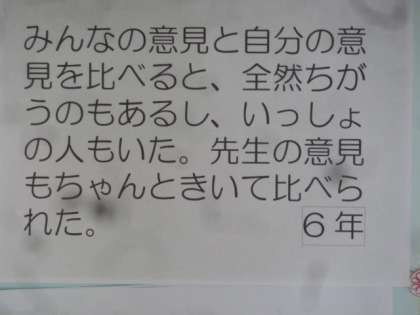 みんなの意見と自分の意
見を比べると、全然ちが
うのもあるし、いっしょ
の人もいた。先生の意見
もちゃんときいて比べら
れた。
６年